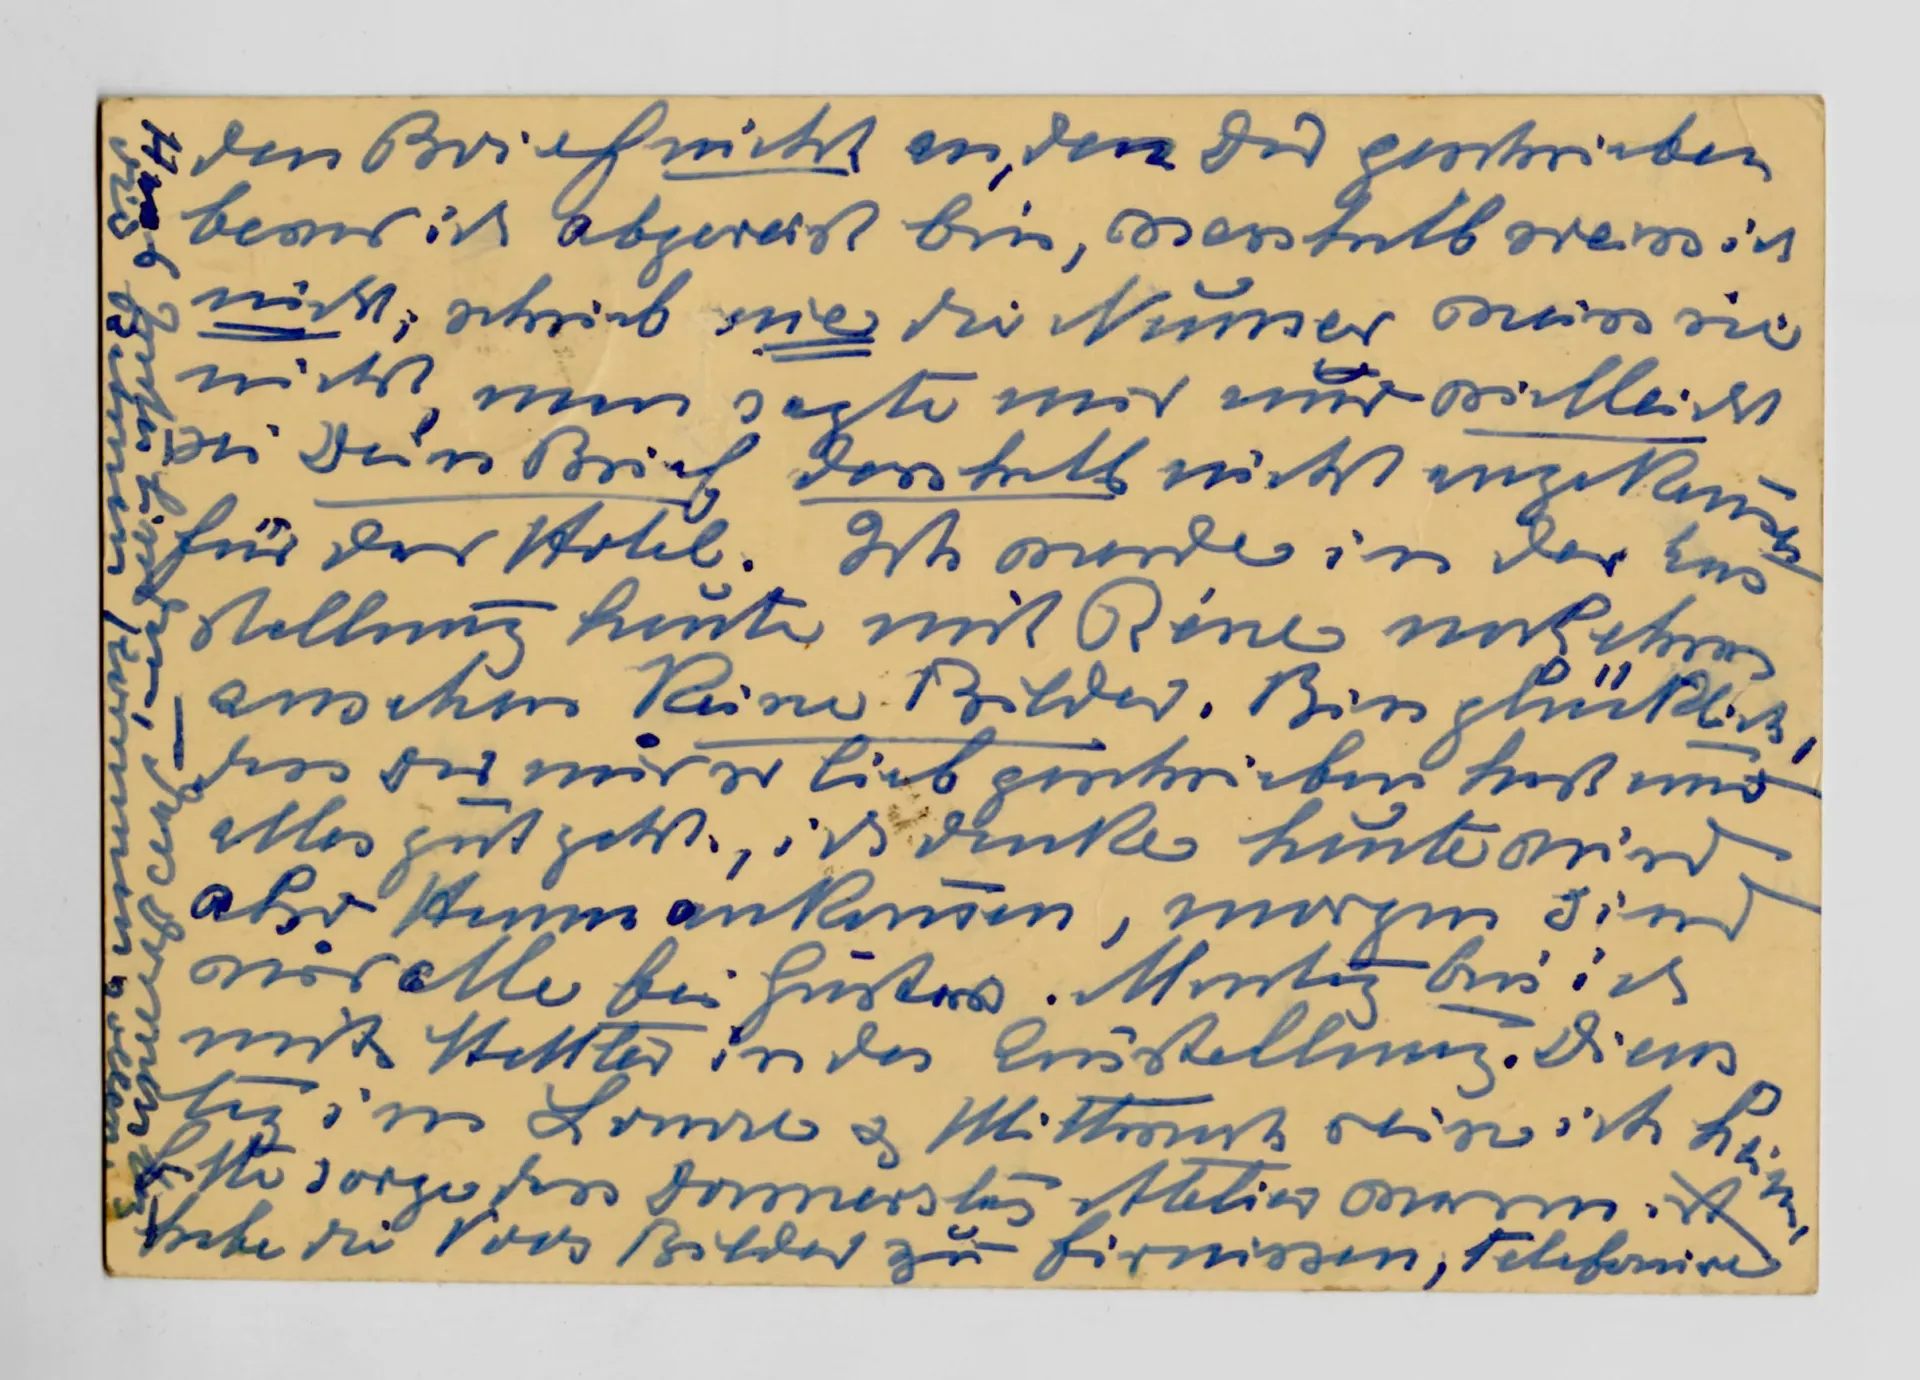 den Brief nicht an, den Du geschrieben
bevor ich abgereist bin, weshalb weiss ich
nicht, schrieb nie die Numer weiss sie
nicht, man sagte mir nur vielleicht
sei Dein Brief deshalb nicht angekomen
für das Hotel. Ich werde in der Aus
stellung heute mit Réne
ansehen Keine Bilder. Bin glücklich,
dass Du mir so lieb geschrieben hast und
alles gut geht, ich denke heute wird
aber ankomen, morgen sind
wir alle bei Gustav. Montag bin ich
mit in der Ausstellung. Diens
tag im Louvre & Mittwoch reise ich heim,
bitte sorge dass Donnerstag Atelier warm ist
habe die Bilder zu firnissen, telefonire